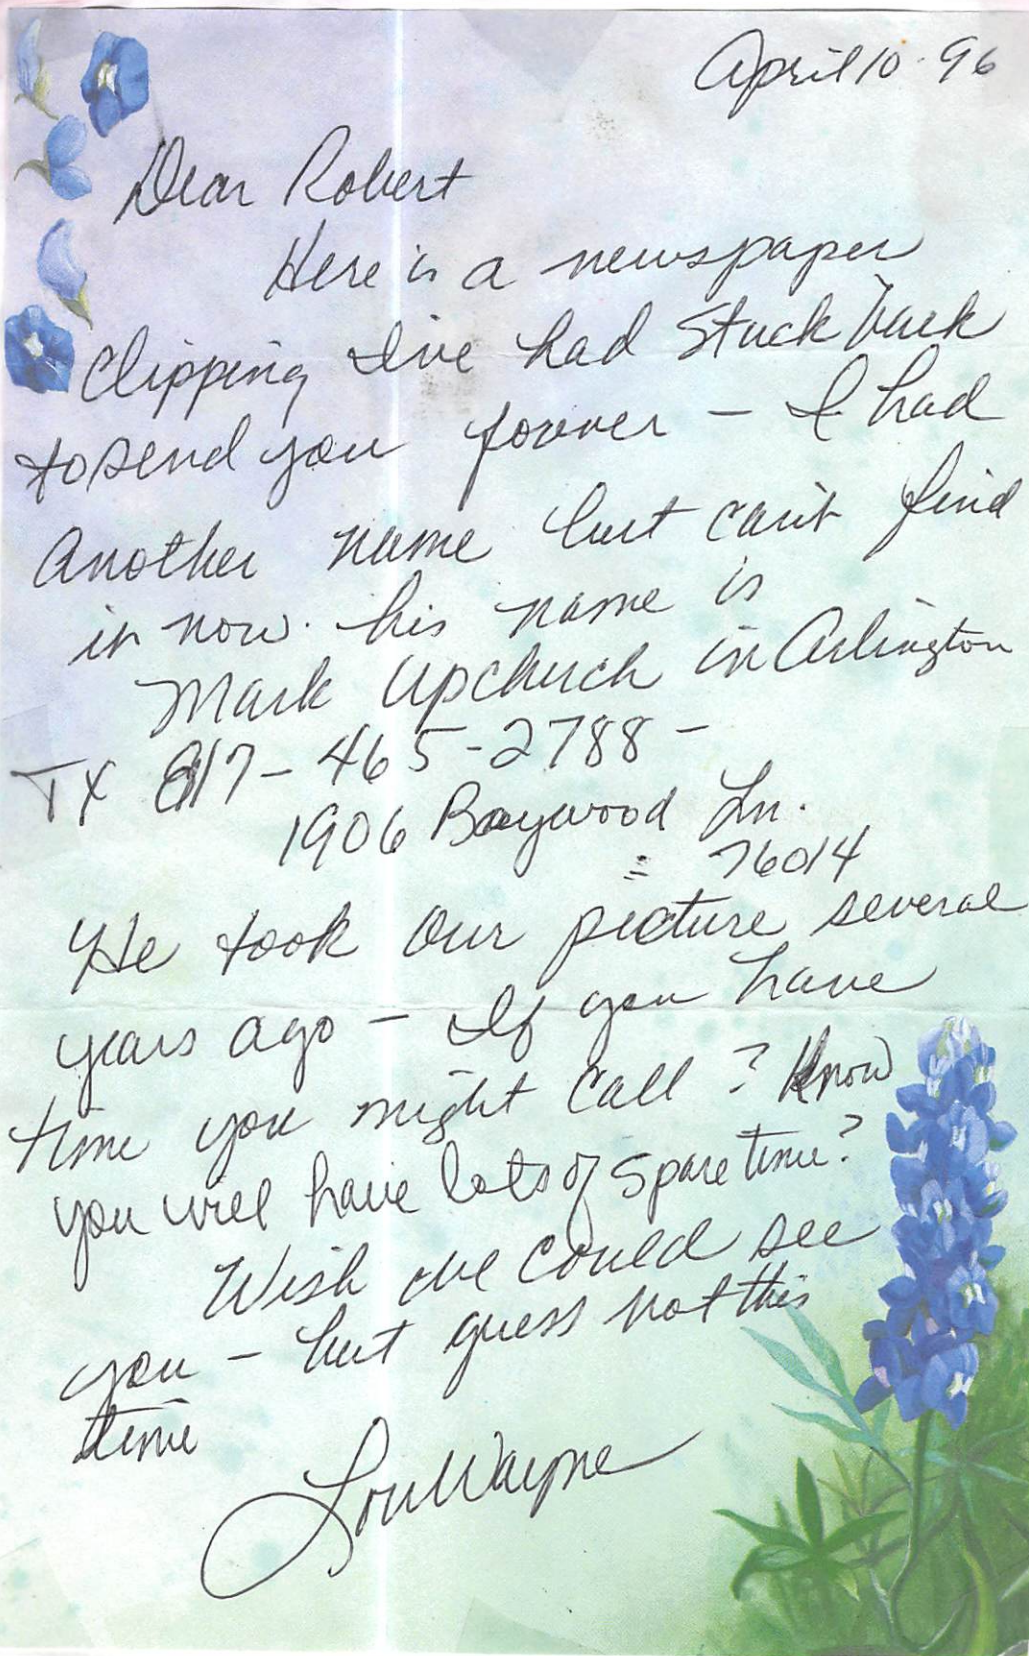 April 10 - 96
Dear Robert
Here is a newspaper
clipping I've had stuck back
to send you forever - I had
another name but can't find
it now. his name is
Mark Upchurch in Arlington
TX 817-465-2788-
1906 Baywood Ln.
= 76014
He took our picture several
years ago - If you have
time you might call? Know
you will have lots of spare time?
Wish we could see
you - but guess not this
time
LouWayne